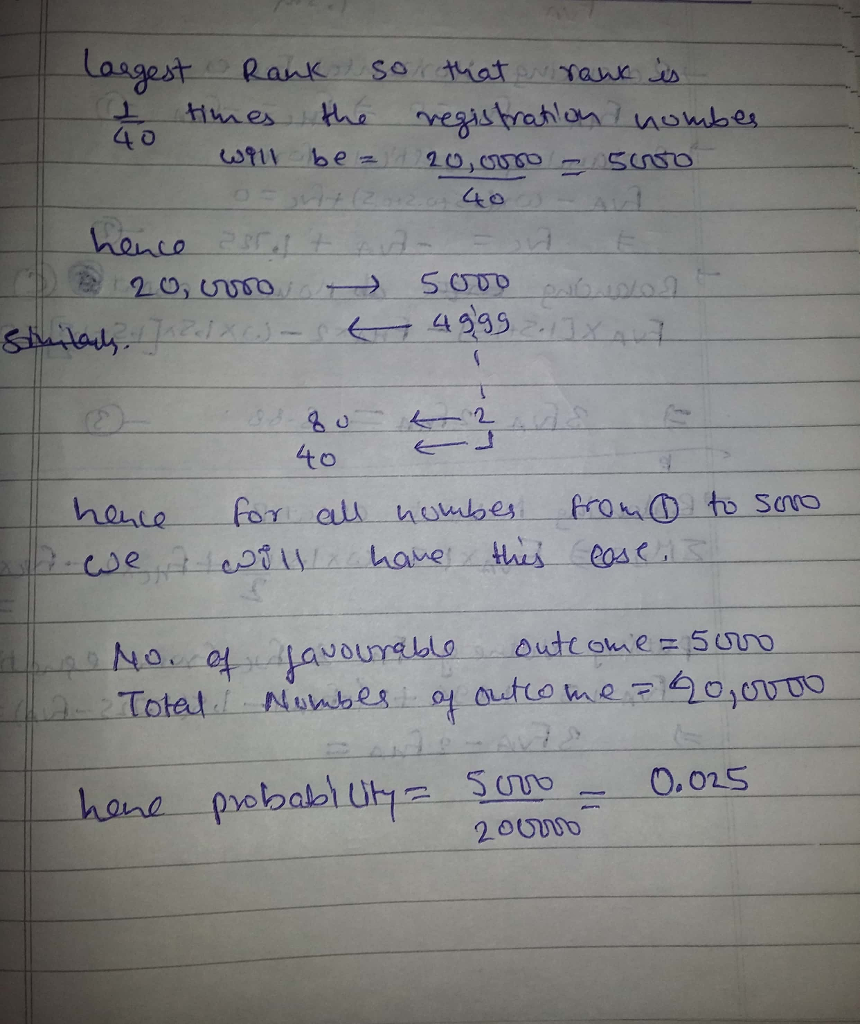 largest Rank so that rank is
1/40 times the registration number
will be = 20,0000/40 = 5000
hence
20,0000 → 5000
← 4999
80 ← 2
40 ← 1
hence for all number from ① to 5000
we will have this case.
No. of favourable outcome = 5000
Total Number of outcome = 20,0000
hene probability = 5000/200000 = 0.025